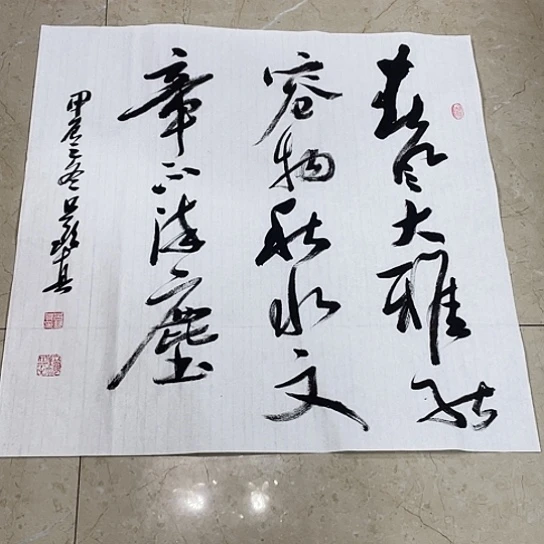 春风大雅能
容物秋水文
章不染塵
甲辰之冬